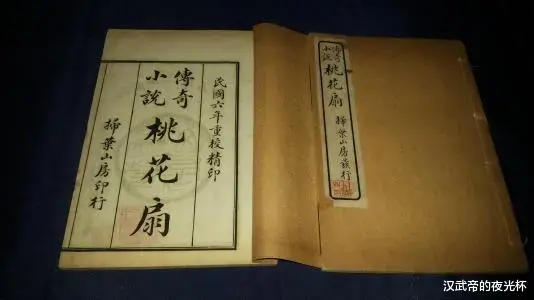 民國六年重校精印
傳奇
小說
桃花扇
掃葉山房印行
傳奇
小說
桃花扇
掃葉山房發行
汉武帝的夜光杯